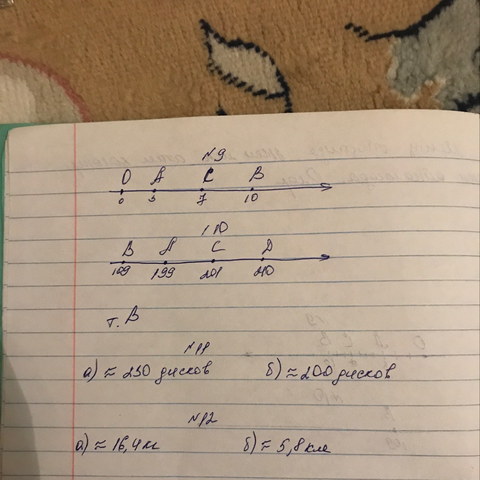 №9
O A C B
0 3 7 10
№10
B A C D
189 199 201 210
т. B
№11
а) ≈ 230 дисков б) ≈ 200 дисков
№12
а) ≈ 16,4 м б) ≈ 5,8 км